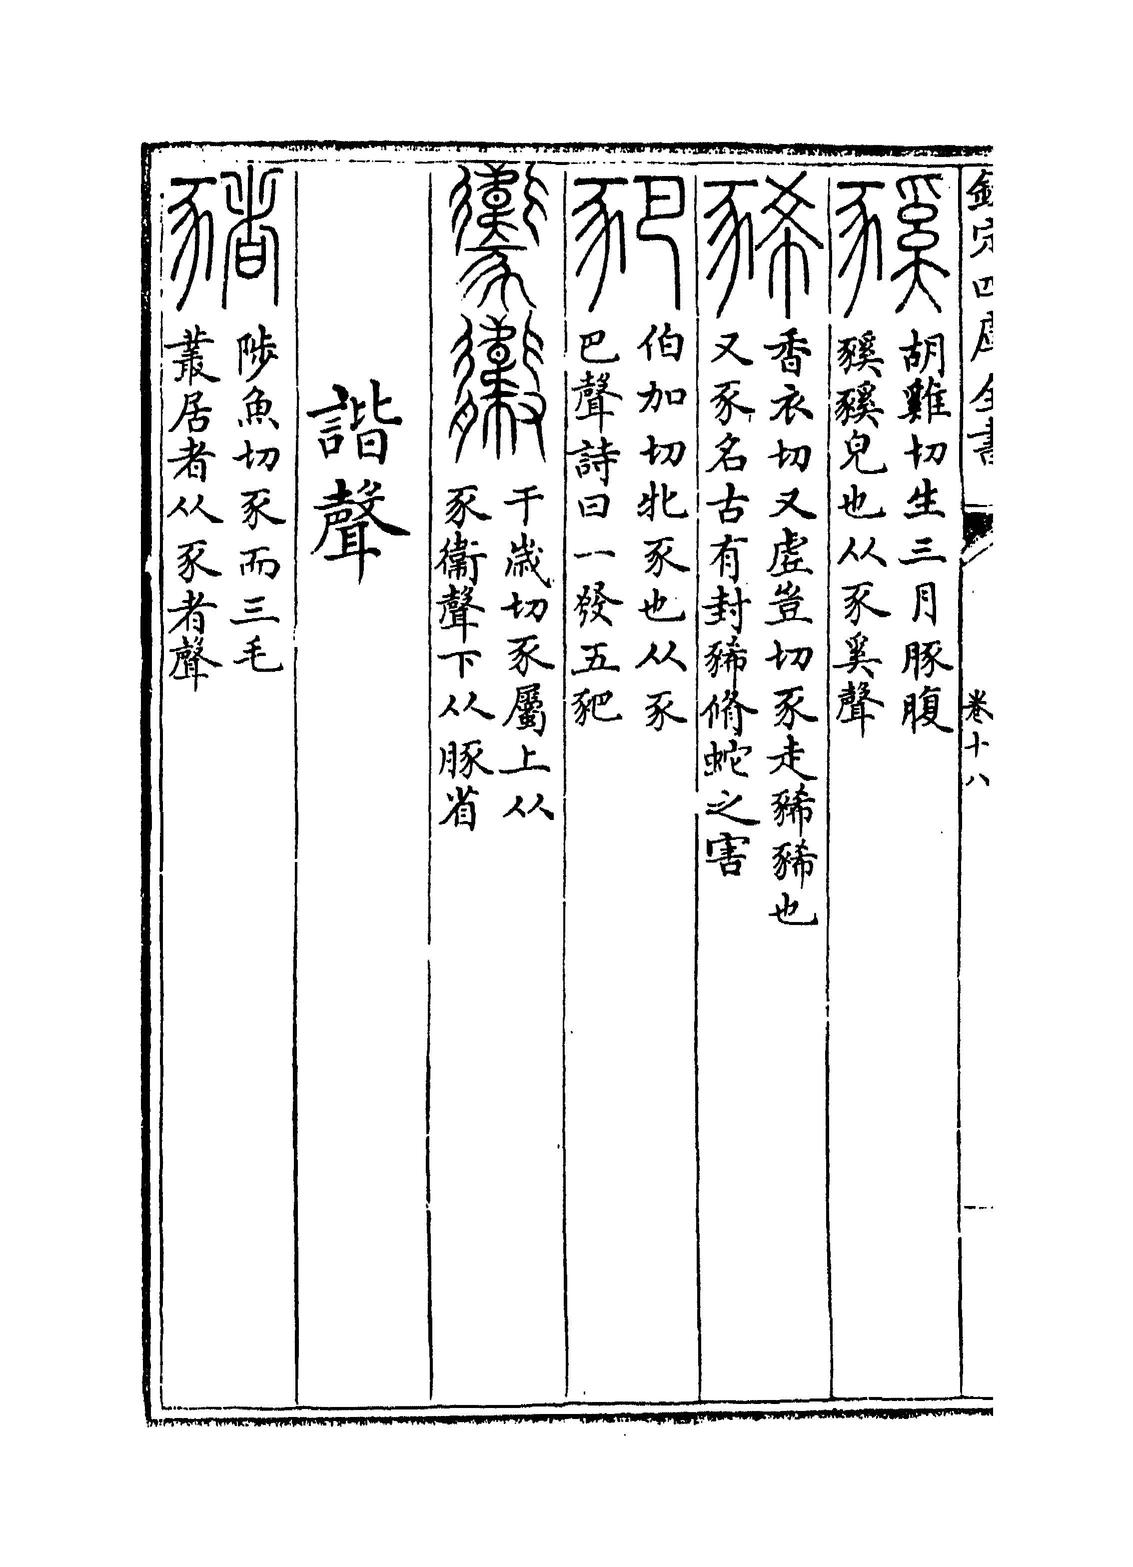 欽定四庫全書
卷十八
豯
胡雞切生三月豚腹
豯豯皃也从豕奚聲
豨
香衣切又虛豈切豕走豨豨也
又豕名古有封豨脩蛇之害
豝
伯加切牝豕也从豕
巴聲詩曰一發五豝
于歲切豕屬上从
豕衞聲下从豚省
諧聲
豬
陟魚切豕而三毛
叢居者从豕者聲